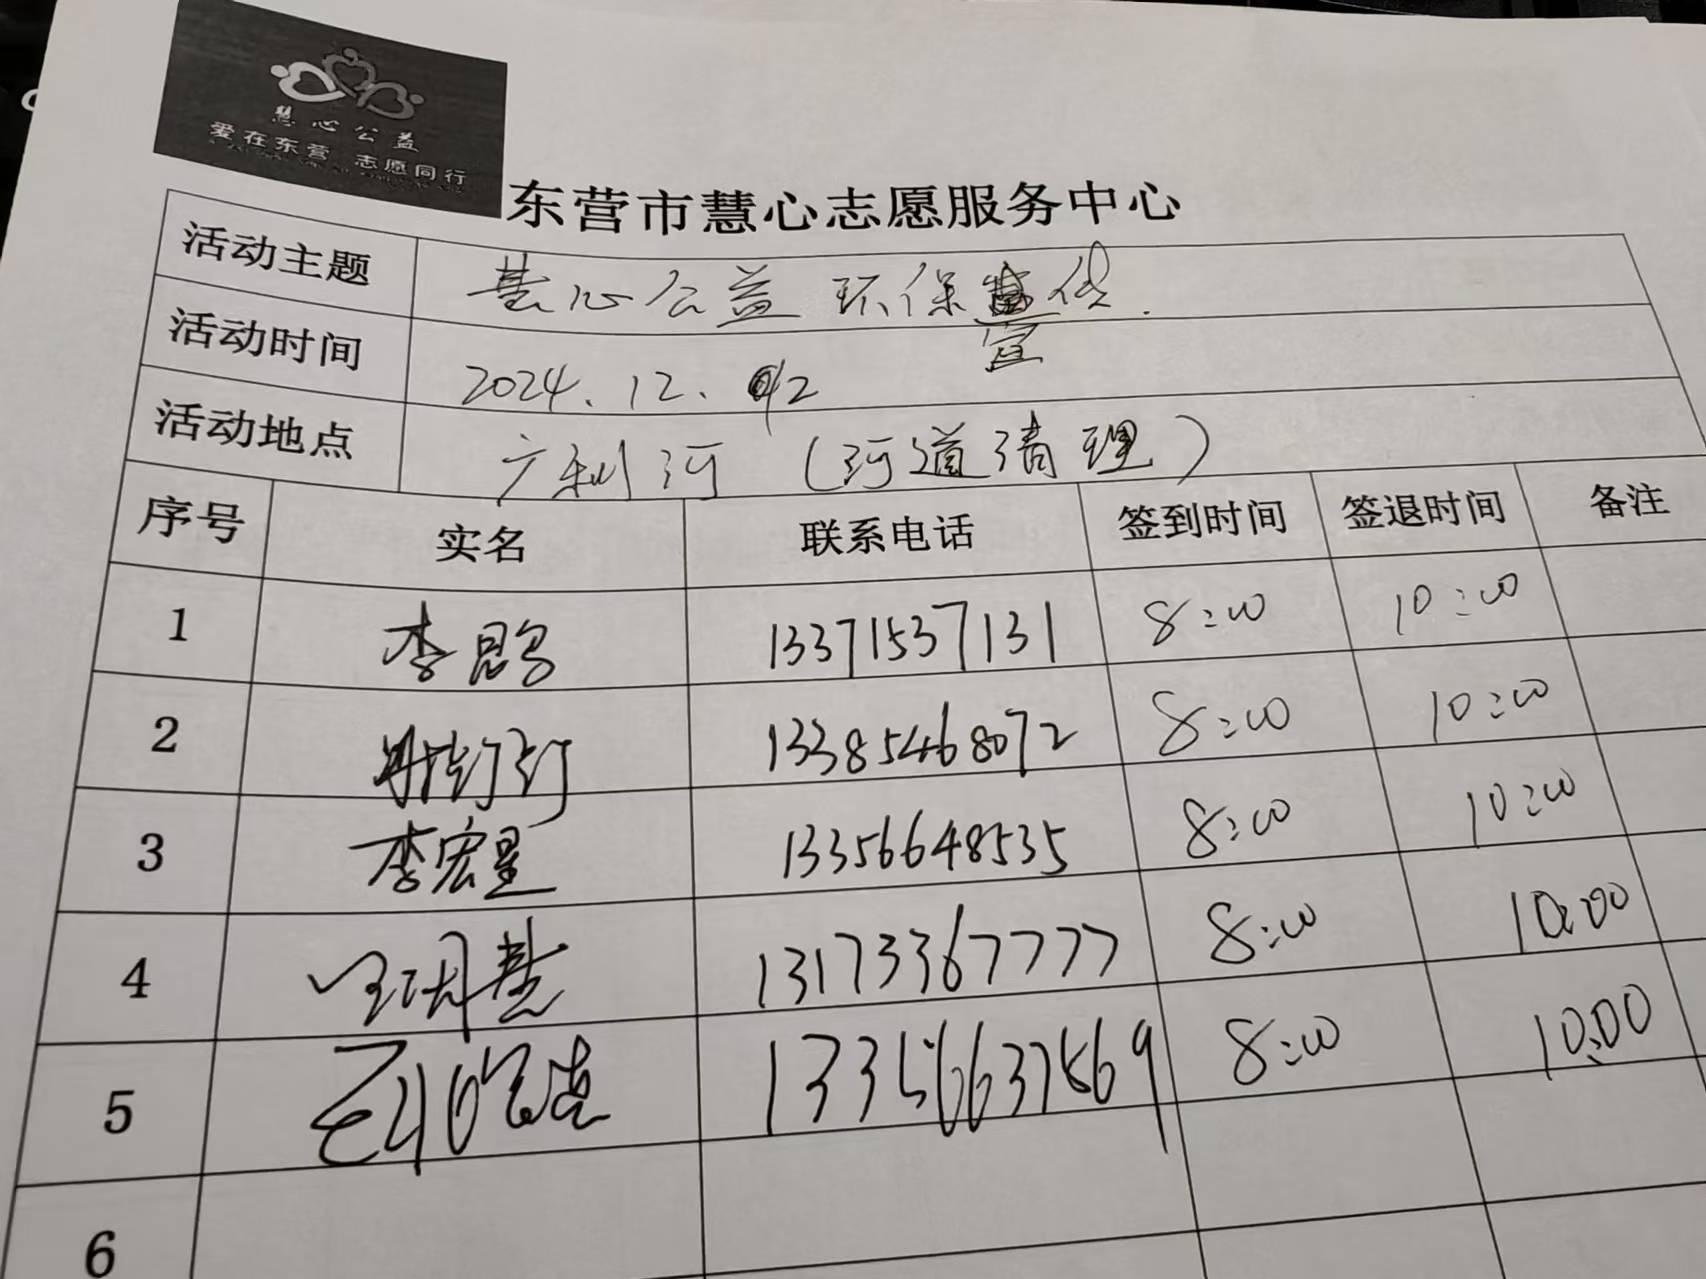 慧心公益
爱在东营 志愿同行
东营市慧心志愿服务中心
活动主题 慧心公益 环保宣传.
活动时间 2024.12.12
活动地点 广利河 (河道清理)
序号 实名 联系电话 签到时间 签退时间 备注
1 李 13371537131 8:00 10:00
2 13385468072 8:00 10:00
3 李宏星 13356648535 8:00 10:00
4 慧 13173367777 8:00 10:00
5 8:00 10:00
6